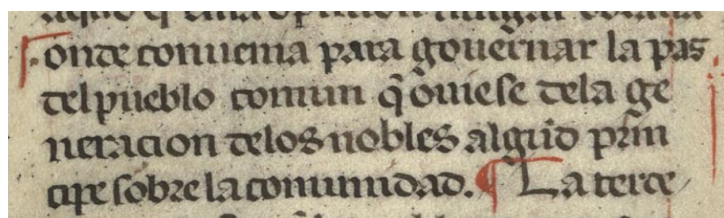 onde conuenia para gouernar la pas
del pueblo comun q̃ ouiese dela ge
neracion delos nobles algũd prin
cipe sobre la comunidad. ¶ La terce